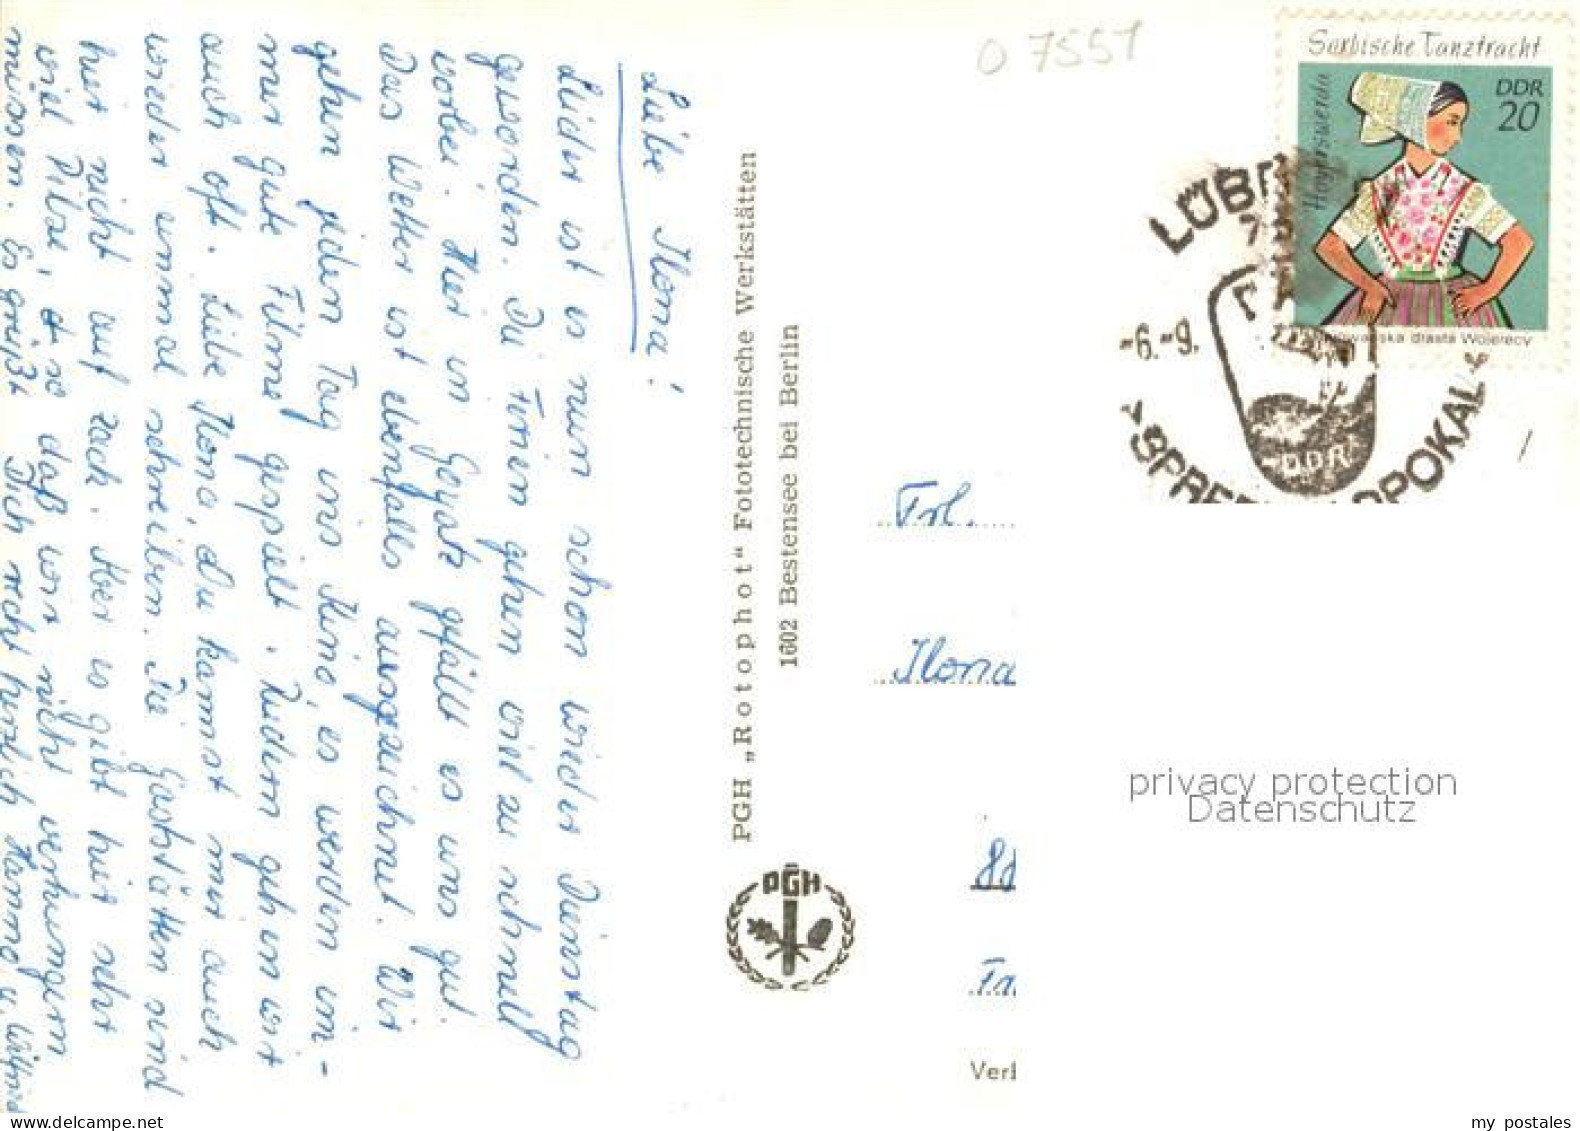 Liebe Ilona!
Leider ist es nun schon wieder Dienstag
geworden. Die Ferien gehen viel zu schnell
vorbei. Hier in Goyatz gefällt es uns gut.
Das Wetter ist ebenfalls ausgezeichnet. Wir
gehen jeden Tag ins Kino, es werden im-
mer gute Filme gespielt. Zudem gehen wir
auch oft. Liebe Ilona, du kannst mir auch
wieder einmal schreiben. Die Gaststätten sind
hier nicht auf zack. Aber es gibt hier sehr
viel Pilze, so daß wir nicht verhungern
müssen. Es grüßt Dich recht herzlich Hanna u. Wilfried
PGH „Rotophot“ Fototechnische Werkstätten
1602 Bestensee bei Berlin
PGH
O 7551
Sorbische Tanztracht
Hoyerswerda
DDR
20
drasta Wojerecy
LÜBB
-6.-9.
DDR
SPREE POKAL
Frl.
Ilona
Verl
privacy protection
Datenschutz
my postales